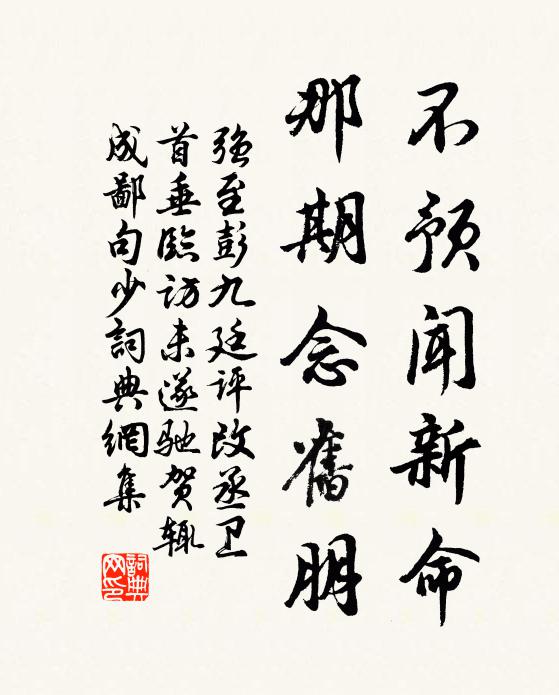 不预闻新命
那期念舊朋
强至彭九廷评改丞卫
首垂臨访未遂驰贺辄
成鄙句少詞典網集
詞典
网印